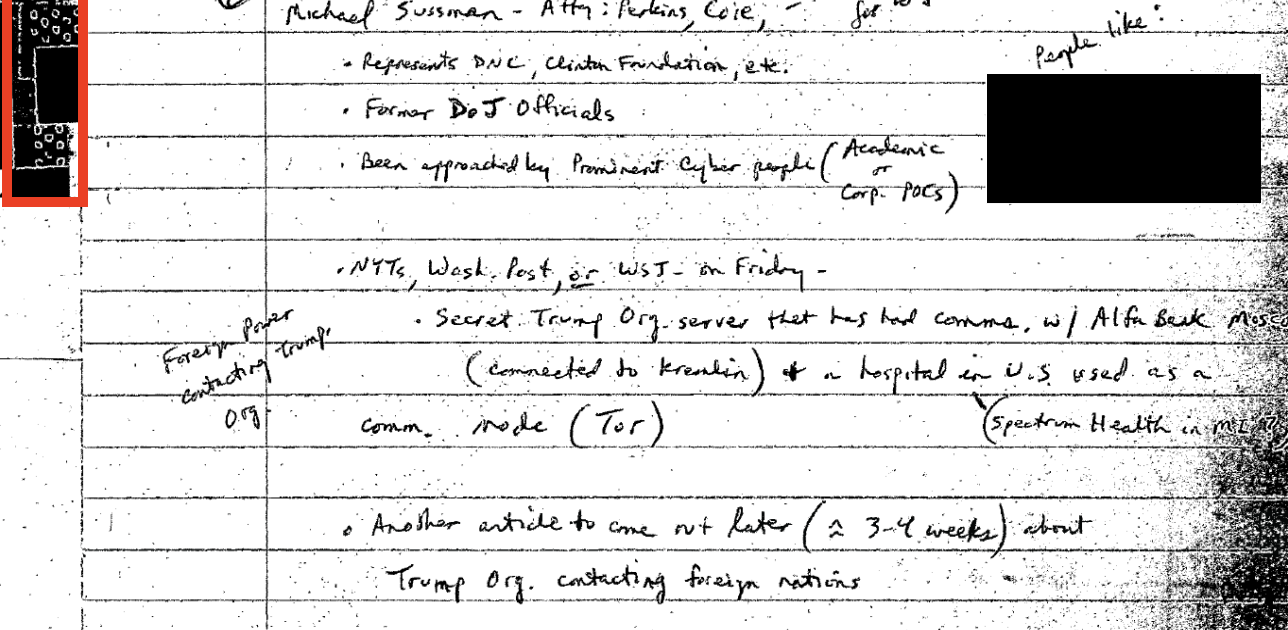 Michael Sussman - Atty: Perkins, Coie, - for
People like:
• Represents DNC, Clinton Foundation, etc.
• Former DoJ Officials
• Been approached by Prominent Cyber people (Academic or Corp. POCs)
• NYTs, Wash. Post, or WSJ - on Friday -
• Secret Trump Org. server that has had comms. w/ Alfa Bank
Foreign Power
contacting Trump.
Org.
(connected to Kremlin) + a hospital in U.S. used as a
comm. node (Tor) (Spectrum Health in MI
• Another article to come out later (≈ 3-4 weeks) about
Trump Org. contacting foreign nations